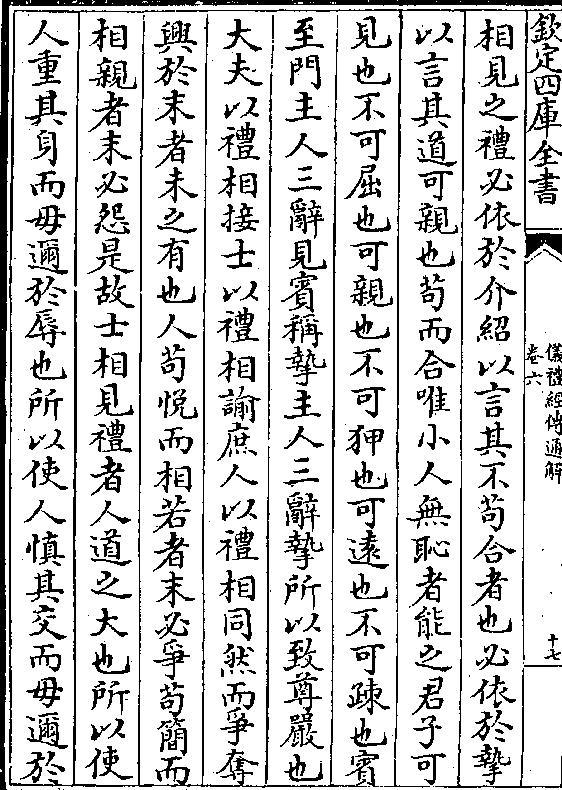 欽定四庫全書
儀禮經傳通解
卷六
十七
相見之禮必依於介紹以言其不苟合者也必依於摯
以言其道可親也苟而合唯小人無恥者能之君子可
見也不可屈也可親也不可狎也可遠也不可疎也賓
至門主人三辭見賓稱摯主人三辭摯所以致尊嚴也
大夫以禮相接士以禮相諭庶人以禮相同然而爭奪
興於末者未之有也人苟悅而相若者末必爭苟簡而
相親者末必怨是故士相見禮者人道之大也所以使
人重其身而毋邇於辱也所以使人慎其交而毋邇於